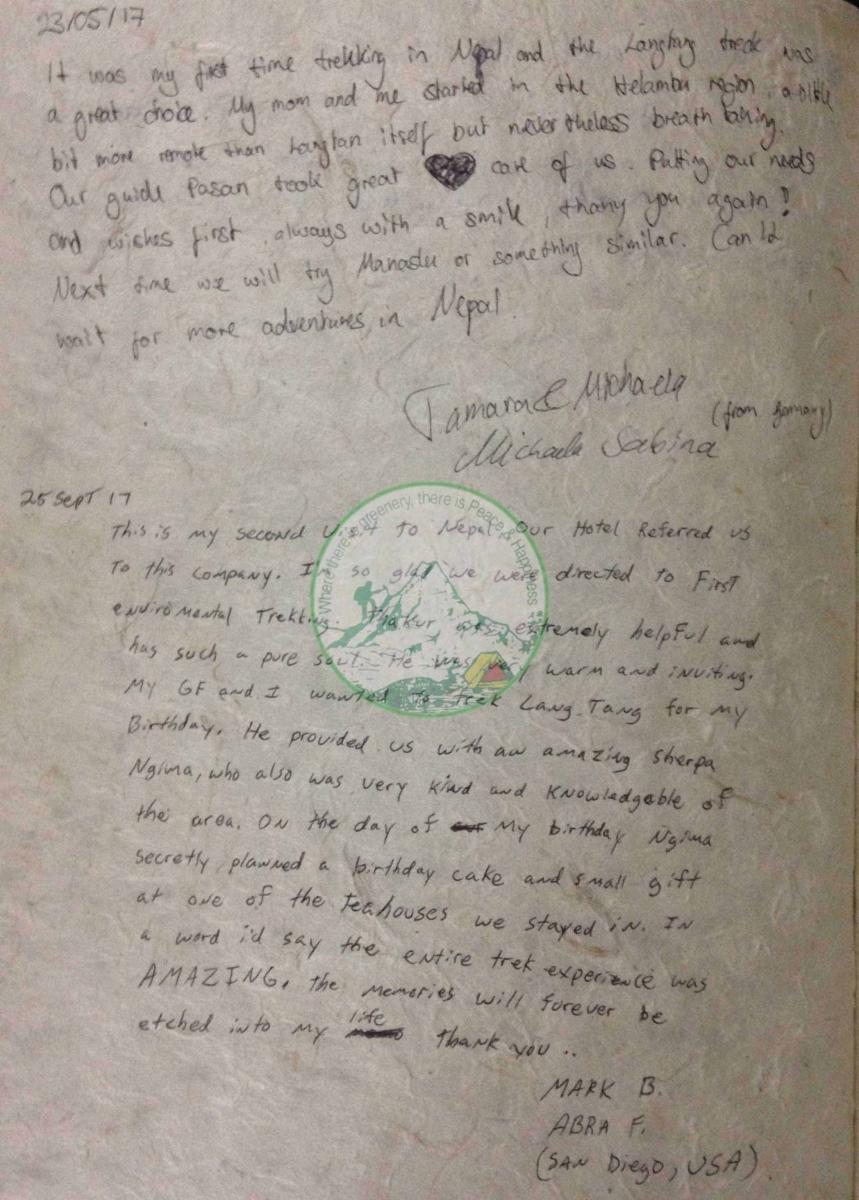 23/05/17
It was my first time trekking in Nepal and the Langtang treck was
a great choice. My mom and me started in the Helambu region, a little
bit more remote than Langtan itself but nevertheless breath taking.
Our guide Pasan took great care of us. Putting our needs
and wishes first, always with a smile, thany you again!
Next time we will try Manaslu or something similar. Can't
wait for more adventures in Nepal.
Tamara & Michaela
(from Germany)
Michaela Sabina
25 Sept 17
This is my second visit to Nepal. Our Hotel Referred us
To this company. I'm so glad we were directed to First
enviromental Trekking. Thakur was extremely helpful and
has such a pure soul. He was very warm and inviting.
My GF and I wanted to trek Lang Tang for my
Birthday. He provided us with an amazing sherpa
Ngima, who also was very kind and knowledgable of
the area. On the day of our My birthday Ngima
secretly planned a birthday cake and small gift
at one of the teahouses we stayed in. In
a word i'd say the entire trek experience was
AMAZING. the memories will forever be
etched into my life thank you ..
MARK B.
ABRA F.
(SAN Diego, USA)
Where there is greenery, there is Peace & Happiness